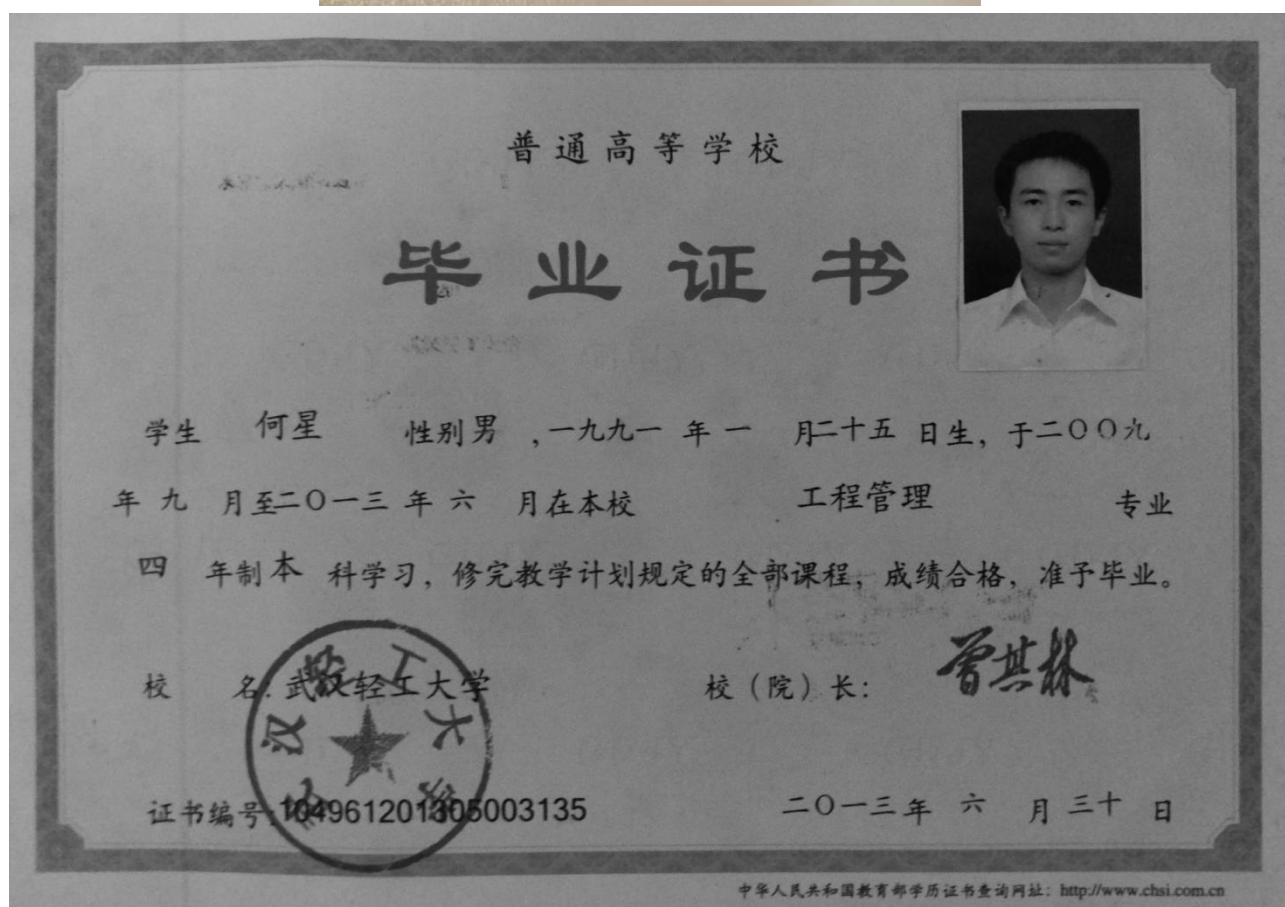 普通高等学校
毕业证书
学生 何星 性别 男 ，一九九一 年 一 月二十五 日生，于二〇〇九
年 九 月至二〇一三 年 六 月在本校 工程管理 专业
四 年制 本 科学习，修完教学计划规定的全部课程，成绩合格，准予毕业。
校 名：武汉轻工大学 校（院）长： 曾其林
武汉轻工大学
证书编号：104961201305003135 二〇一三年 六 月 三十 日
中华人民共和国教育部学历证书查询网址：http://www.chsi.com.cn